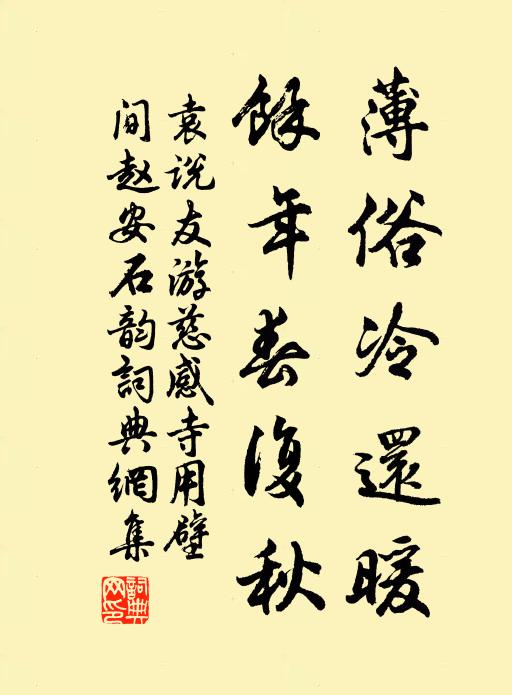 薄俗冷還暖
餘年春復秋
袁说友游慈感寺用壁
间赵安石韵詞典網集
詞典網印